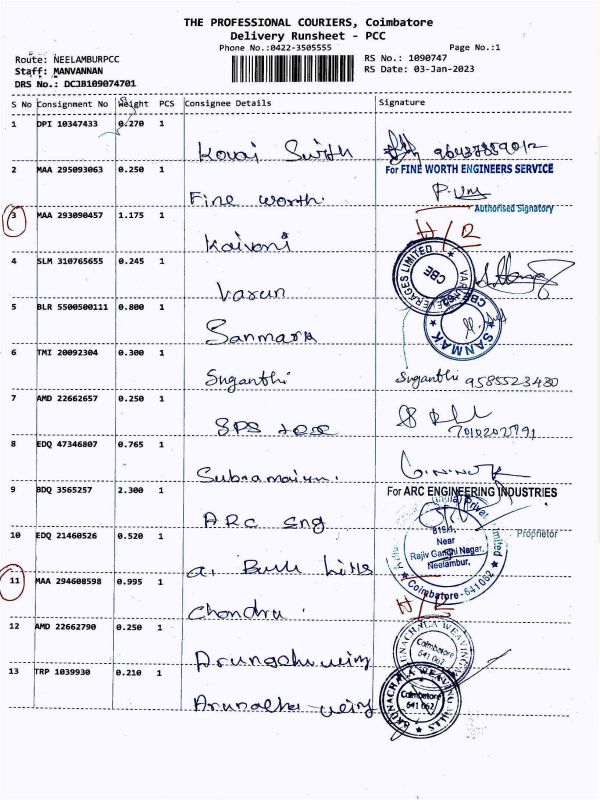 THE PROFESSIONAL COURIERS, Coimbatore
Delivery Runsheet - PCC
Phone No.:0422-3505555
Page No.:1
Route: NEELAMBURPCC
RS No.: 1090747
Staff: MANVANNAN
RS Date: 03-Jan-2023
DRS No.: DCJB109074701
S No Consignment No Weight PCS Consignee Details Signature
1 DPI 10347433 0.270 1
Kovai
2 MAA 295093063 0.250 1 For FINE WORTH ENGINEERS SERVICE
Fine worth.
Authorised Signatory
3 MAA 293090457 1.175 1
Kaivani H/R
4 SLM 310765655 0.245 1
Varun
CBE
5 BLR 5500500111 0.800 1
SANMAK
6 TMI 20092304 0.300 1
Suganthi Suganthi 9585523430
7 AMD 22662657 0.250 1
SPS
8 EDQ 47346807 0.765 1
9 BDQ 3565257 2.300 1 For ARC ENGINEERING INDUSTRIES
ARC eng
Proprietor
10 EDQ 21460526 0.520 1
Near
Rajiv Gandhi Nagar,
Neelambur,
Coimbatore-641062
11 MAA 294608598 0.995 1
Chandru H/R
12 AMD 22662790 0.250 1
Coimbatore
641 062
13 TRP 1039930 0.210 1
Coimbatore
641 062
ARUNACHALA WEAVING MILLS